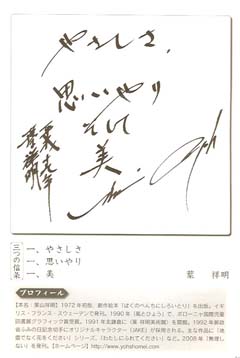 やさしさ、
思いやり
そして
美
三つの信条
一、やさしさ
一、思いやり
一、美
葉 祥明
プロフィール
【本名：葉山祥明】1972年初版、創作絵本「ぼくのべんちにしろいとり」を出版。イギ
リス・フランス・スウェーデンで発刊。1990年「風とひょう」で、ボローニャ国際児童
図書展グラフィック賞受賞。1991年北鎌倉に〈葉 祥明美術館〉を開館。1992年郵政
省ふみの日記念切手にオリジナルキャラクター〈JAKE〉が採用される。主な作品に「地
雷ではなく花をください」シリーズ、「わたしにふれてください」など。2008年「無理し
ない」を発刊。【ホームページ】http://www.yohshomei.com